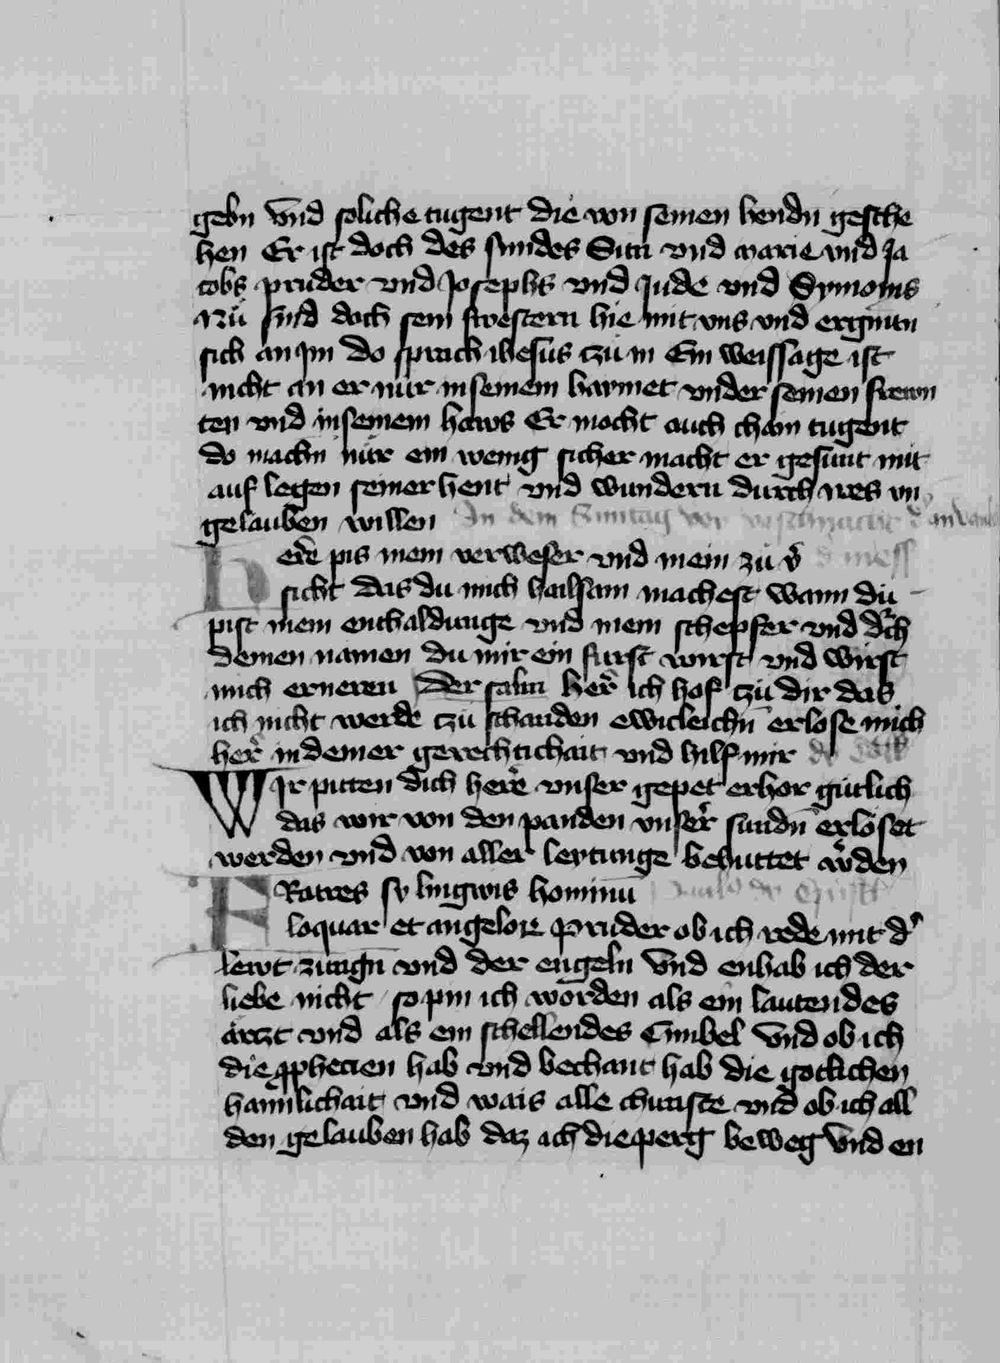 gebn vnd soliche tugent die von seinen hendn gesche
hen Er ist doch des smides Sun vnd marie vnd Ja
cobs pruder vnd Josephs vnd Jude vnd Symonis
Nu sind doch sein swestern hie mit vns vnd ergintn
sich an jm Do sprach ihesus zu in Ein weissage ist
nicht an er nur in seinem haymet vnder seinen frewn
ten vnd in seinem haws Er mocht auch chain tugent
do machn nur ein wenig sicher macht er gesunt mit
auf legen seiner hent vnd wundern durch ires vn
gelauben willen In dem Suntag vor vaschnacht d̕
Here pis mein verweser vnd mein zu v̕ mess
sicht das du mich hailsam machest wann du
pist mein enthaldunge vnd mein schepfer vnd dͬch
deinen namen du mir ein furst wirst vnd wirst
mich erneren Der salm her̕ ich hof zu dir das
ich nicht werde zu schanden ewicleichn̄ erlose mich
her̕ in deiner gerechtichait vnd hilf mir
WJr pitten dich here vnser gepet erhor gutlich
das wir von den panden vnser̕ sundn̄ erloset
werden vnd von aller leytunge behuttet w̕den
FRatres sy lingwis hominū
loquar et angeloꝝ Pruder ob ich rede mit d̕
lewt zungn vnd der engeln Vnd enhab ich der
liebe nicht so pin ich worden als ein lautendes
arczt vnd als ein schellendes Cimbel Vnd ob ich
die ꝓphecien hab vnd bechant hab die gotlichen
haimlichait vnd wais alle chunste vnd ob ich all
den gelauben hab daz ich die perg beweg Vnd en